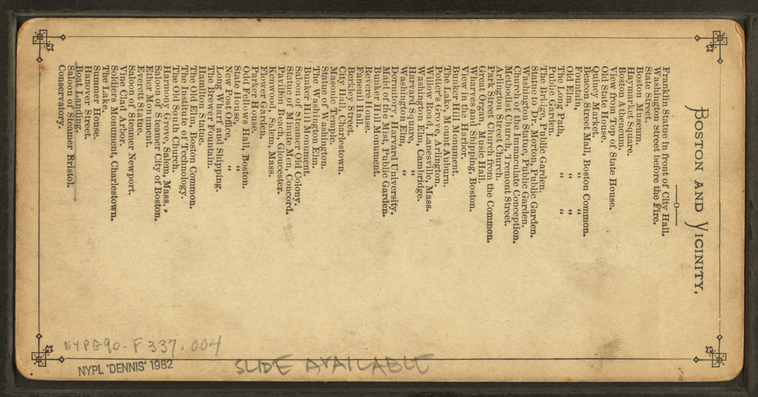 BOSTON AND VICINITY.
Franklin Statue in front of City Hall.
Washington Street before the Fire.
State Street.
Boston Museum.
Haymarket Square.
Boston Atheneum.
View from Top of State House.
Old State House.
Quincy Market.
Beacon Street Mall, Boston Common.
Fountain, " "
Old Elm, " "
The Long Path, " "
Public Garden.
The Bridge, Public Garden.
Statue Equestrian, Public Garden.
Washington Statue, Public Garden.
Church of the Immaculate Conception.
Methodist Church, Tremont Street.
Arlington Street Church.
Park Street Church from the Common.
Great Organ, Music Hall.
Wharves and Shipping, Boston.
View in the Harbor.
Bunker Hill Monument.
The Lake, Mount Auburn.
Potter's Grove, Arlington.
Willow Road, Lanesville, Mass.
Washington Elm, Cambridge.
Harvard Square, "
Washington Elm, "
Dormitory, Harvard University.
Maid of the Mist, Public Garden.
Bunker Hill Monument.
Revere House.
Faneuil Hall.
Berkeley Street.
City Hall, Charlestown.
Masonic Temple.
Statue Washington.
The Washington Elm.
Bunker Hill Monument.
Saloon of Steamer Old Colony.
Statue of Minute Men, Concord.
Pavilion Beach, Gloucester.
Kenwood, Salem, Mass.
Flower Garden.
Parker House.
Odd Fellows Hall, Boston.
State House, "
New Post Office, "
Long Wharf and Shipping.
The Two Fountains.
Hamilton Statue.
The Old Elm, Boston Common.
The Institute of Technology.
The Old South Church.
Harmony Grove, Salem, Mass.
Saloon of Steamer City of Boston.
Ether Monument.
Everett Statue.
Saloon of Steamer Newport.
Vine Clad Arbor.
Soldiers Monument, Charlestown.
The Lake.
Summer House.
Hanover Street.
Boat Landing.
Saloon of Steamer Bristol.
Conservatory.
NYPG90-F337.004
NYPL 'DENNIS' 1982
SLIDE AVAILABLE